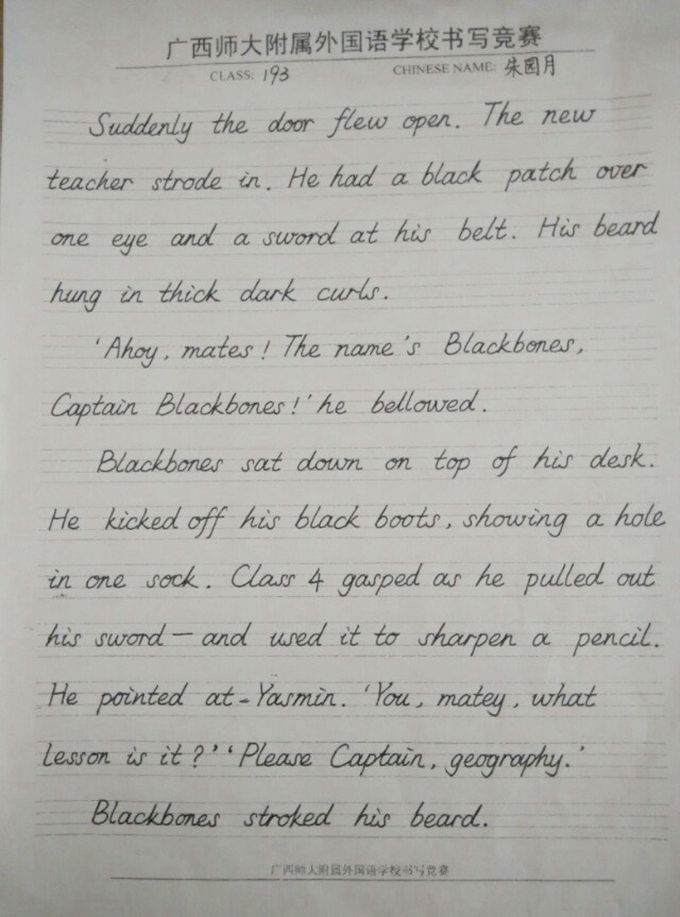 广西师大附属外国语学校书写竞赛
CLASS: 193 CHINESE NAME: 朱圆月
Suddenly the door flew open. The new
teacher strode in. He had a black patch over
one eye and a sword at his belt. His beard
hung in thick dark curls.
'Ahoy, mates! The name's Blackbones,
Captain Blackbones!' he bellowed.
Blackbones sat down on top of his desk.
He kicked off his black boots, showing a hole
in one sock. Class 4 gasped as he pulled out
his sword — and used it to sharpen a pencil.
He pointed at - Yasmin. 'You, matey, what
lesson is it?' 'Please Captain, geography.'
Blackbones stroked his beard.
广西师大附属外国语学校书写竞赛